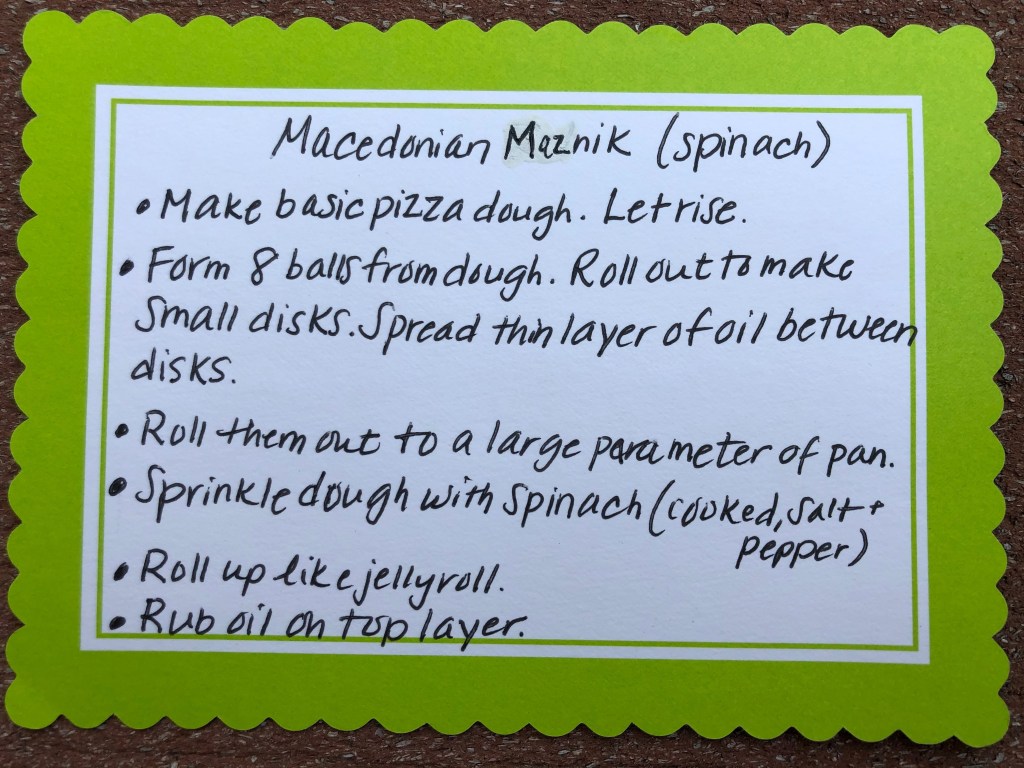 Macedonian Maznik (spinach)
• Make basic pizza dough. Let rise.
• Form 8 balls from dough. Roll out to make
small disks. Spread thin layer of oil between
disks.
• Roll them out to a large parameter of pan.
• Sprinkle dough with spinach (cooked, salt +
pepper)
• Roll up like jellyroll.
• Rub oil on top layer.